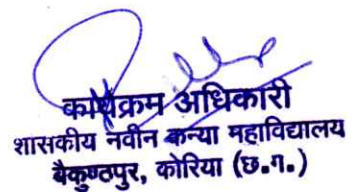 कार्यक्रम अधिकारी
शासकीय नवीन कन्या महाविद्यालय
बैकुण्ठपुर, कोरिया (छ.ग.)